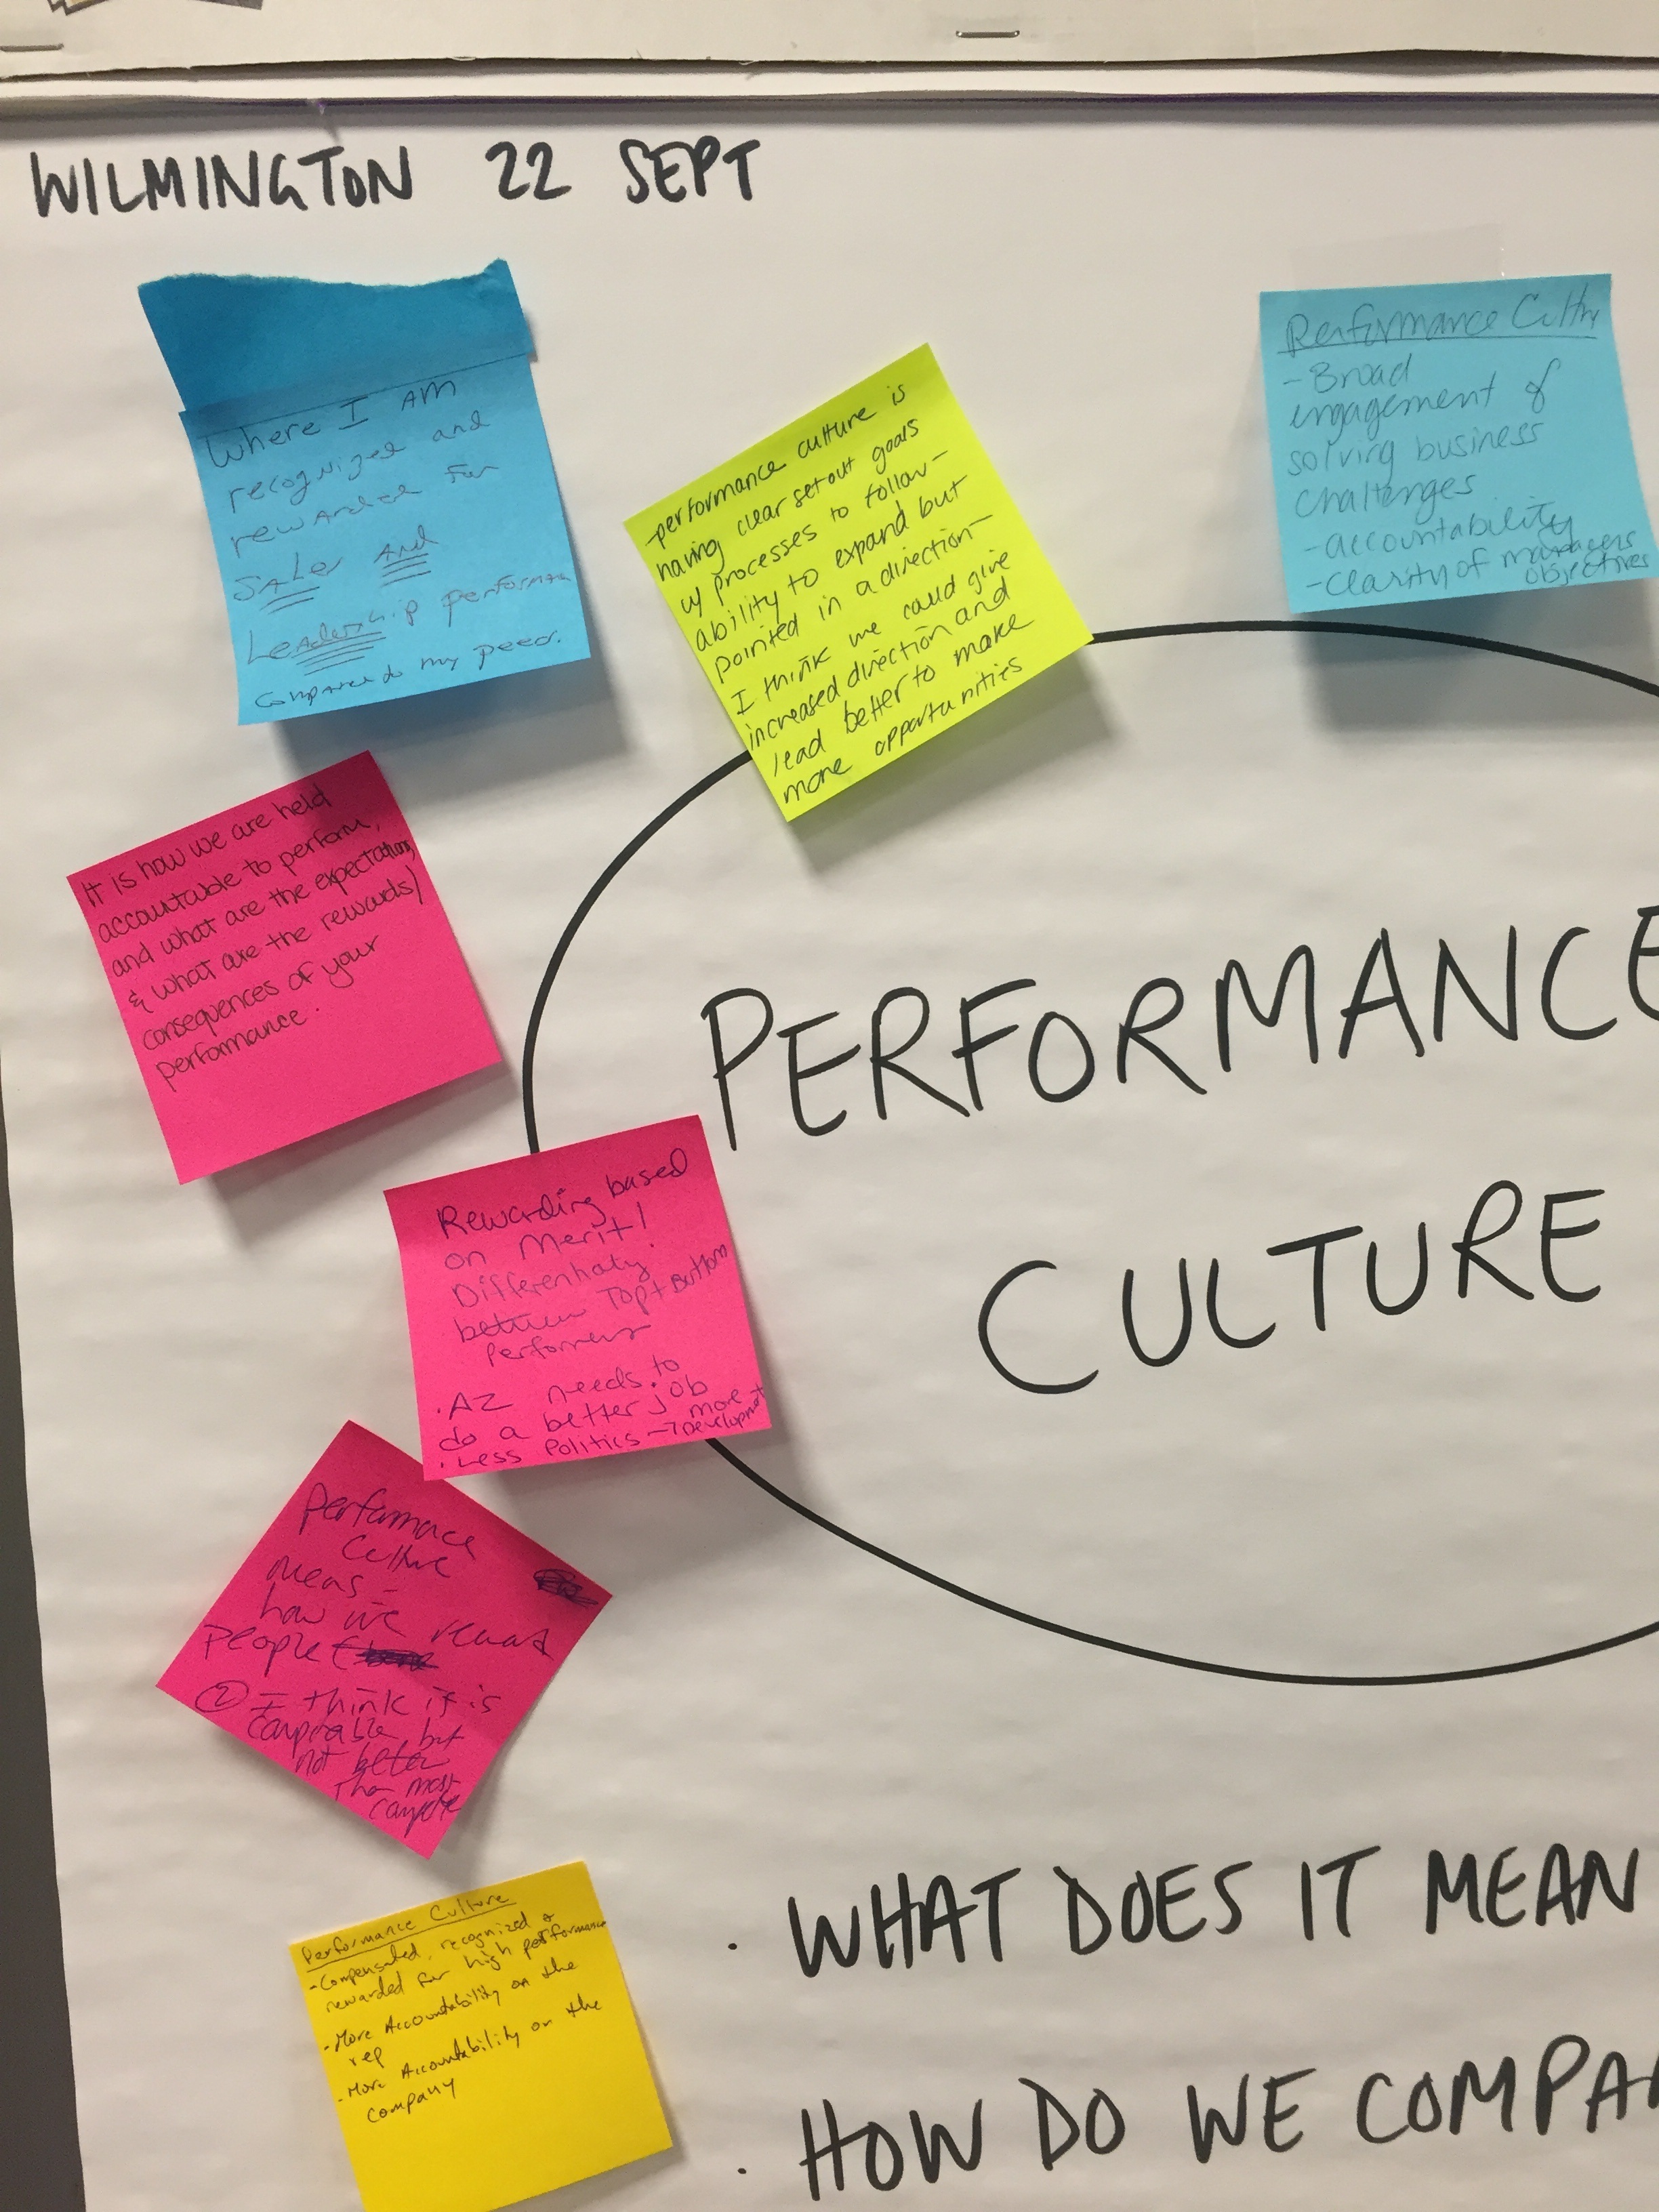 WILMINGTON 22 SEPT
Where I AM
recognized and
rewarded for
SALes And
Leadership performan
Compared to my peers.
performance culture is
having clear set out goals
w/ processes to follow -
ability to expand but
pointed in a direction -
I think we could give
increased direction and
lead better to make
more opportunities
Performance Cultr
- Broad
engagement of
solving business
challenges
- accountability
- clarity of managers
objectives
It is how we are held
accountable to perform,
and what are the expectations,
& what are the rewards/
consequences of your
performance.
PERFORMANCE
CULTURE
Rewarding based
on Merit!
Differentiaty
between Top + Bottom
Performers
. AZ needs to
do a better job
. Less Politics → more Development
Performance
Culture
means -
how we reward
People (
② I think it is
comparable but
not better
than most
Performance Culture
- Compensated, recognized &
rewarded for high performance
- More Accountability on the
rep
- More Accountability on the
company
. WHAT DOES IT MEAN
. HOW DO WE COMPA